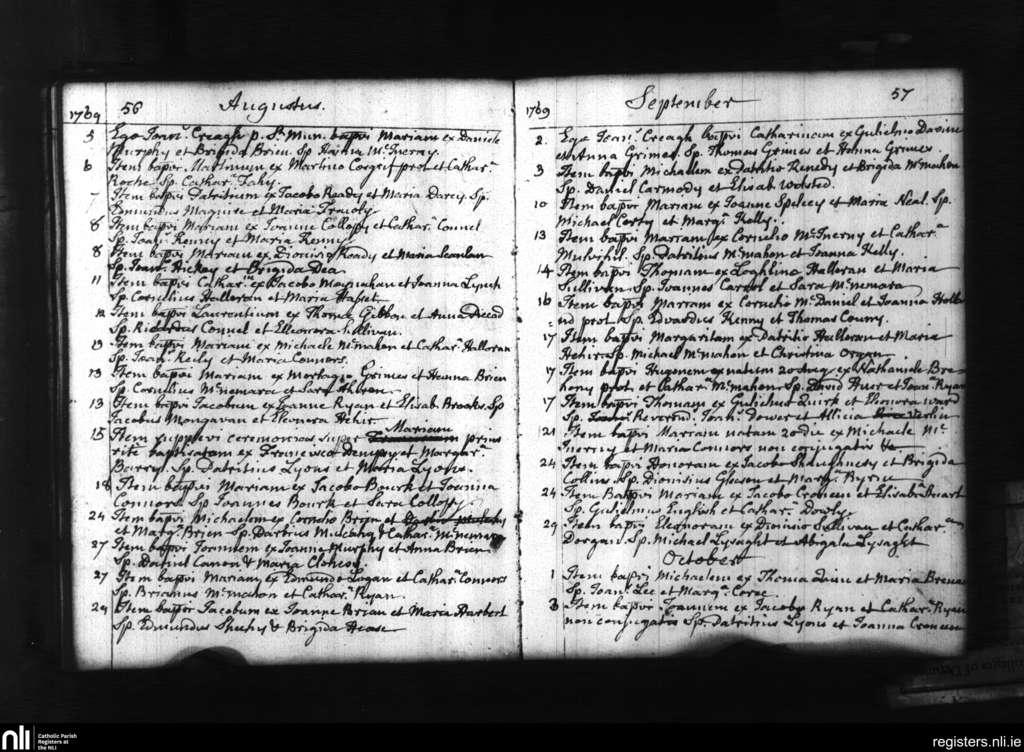 1769 56 Augustus.
5 Ego Joan. Creagh p. St. Mun. bapvi Mariam ex Daniele
Murphy et Brigida Brien Sp Hanna McInerny.
6 Item bapvi Martinum ex Martino Cosgrif prot et Cathar.
Roche Sp. Cathar. Fahy.
7 Item bapvi Patritium ex Jacobo Ready et Maria Darcy Sp.
Edmundus Maguire et Maria
8 Item bapvi Mariam ex Joanne Collopy et Cathar. Connel
Sp. Joan. Kenny et Maria Kenny
8 Item bapvi Mariam ex Dionisio Ready et Maria Scanlan
Sp. Joan. Hickey et Brigida Dea
11 Item bapvi Cathar. ex Jacobo Moynahan et Joanna Lynch
Sp. Cornelius Halloran et Maria
12 Item bapvi Laurentium ex Thoma Gibbon et Anna
Sp. Ricardus Connel et Elleonora Sullivan.
13 Item bapvi Mariam ex Michaele McMahon et Cathar. Halloran
Sp. Joan. Keily et Maria Connors.
13 Item bapvi Mariam ex Mortagio Grimes et Hanna Brien
Sp. Cornelius McNemara et Sara
13 Item bapvi Jacobum ex Joanne Ryan et Elisab. Brooks. Sp
Jacobus Mongavan et Eleonora Hehir.
Mariam
15 Item supplevi ceremonias super prius
rite baptisatam ex Francisco Dempsy et Margar.
Barry. Sp. Patritius Lyons et Maria Lyons.
18 Item bapvi Mariam ex Jacobo Bourk et Joanna
Connors Sp Joannes Bourk et Sara Collopy
24 Item bapvi Michaelem ex Cornelio Bryan et
et Marg. Brien Sp. Darbius Mulcahy & Cathar. McNemara
27 Item bapvi Joannem ex Joanne Murphy et Anna Brien
Sp. Daniel Canon & Maria Clohesy
27 Item bapvi Mariam ex Edmundo Logan et Cathar. Connors
Sp. Brianus McMahon et Cathar. Ryan.
29 Item bapvi Jacobum ex Joanne Brian et Maria Harbert
Sp. Edmundus Sheehy & Brigida Hease
1769 September 57
2. Ego Joan. Creagh bapvi Catharinam ex Gulielmo Davine
et Anna Grimes. Sp. Thomas Grimes et Hanna Grimes.
3 Item bapvi Michaelem ex Patritio Kenedy et Brigida McMahon
Sp. Daniel Carmody et Elisab Worsted.
10 Item bapvi Mariam ex Joanne Spelecy et Maria Neal. Sp.
Michael Corby et Marg. Kelly.
13 Item bapvi Mariam ex Cornelio McInerny et Cathar.
Mulvihil. Sp. Patritius McMahon et Joanna Kelly.
14 Item bapvi Thomam ex Loghlino Halloran et Maria
Sullivan. Sp. Joannes Carrol et Sara McNemara
16 Item bapvi Mariam ex Cornelio McDaniel et Joanna Holla
nd prot. Sp. Edvardus Kenny et Thomas Courry.
17 Item bapvi Margaritam ex Patritio Halloran et Maria
Hehir Sp. Michael McMahon et Christina Organ
17 Item bapvi Hugonem ex natum 20 Aug. ex Nathaniele Bre
hony prot. et Cathar. McMahon. Sp. David Huse et Joan. Ryan
17 Item bapvi Thomam ex Gulielmo Quirk et Elonora Ward
Sp. Reverend. Jonh. Dower et Allicia Verlin
21 Item bapvi Mariam natam 20 die ex Michaele Mc
Inerny et Maria Connors non conjugatis
24 Item bapvi Honoram ex Jacobo Shaughnesy et Brigida
Collins Sp. Dionisius Gleeson et Marg. Byrne
24 Item Bapvi Mariam ex Jacobo Croneen et Elisab. Stuart
Sp. Gulielmus English et Cathar. Dowly.
29 Item bapvi Eleonoram ex Dionisio Sullivan et Cathar.
Dorgan. Sp. Michael Lysaght et Abigala Lysaght
October
1 Item bapvi Michaelem ex Thoma Quin et Maria Brenan
Sp. Joan. Lee et Marg. Corse
3 Item bapvi Joannem ex Jacobo Ryan et Cathar. Ryan
non conjugatis Sp. Patritius Lyons et Joanna Croneen
nli Catholic Parish
Registers at
the NLI
registers.nli.ie